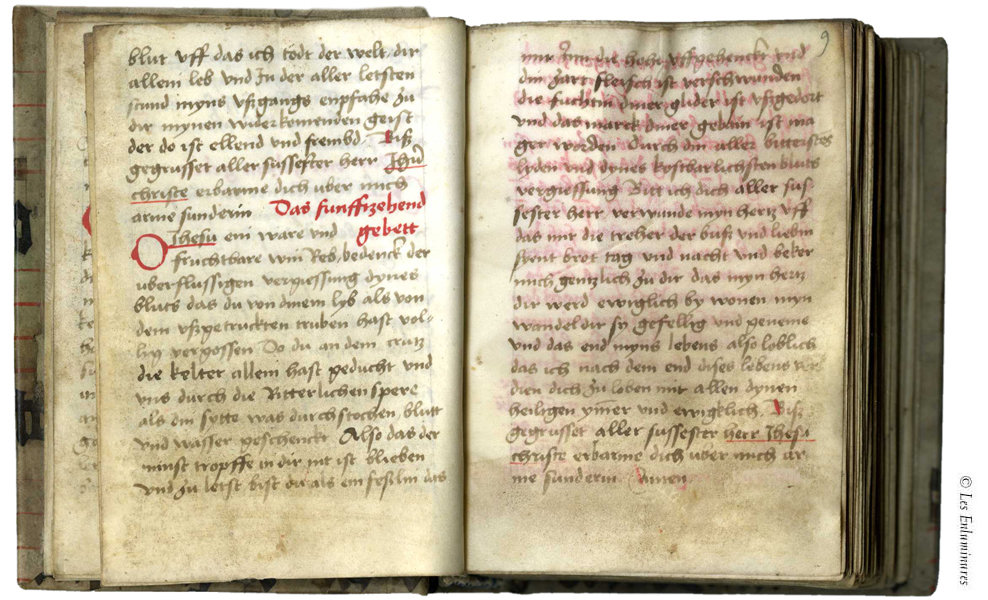 blut vff das ich todt der welt dir
allein leb vnd Jn der aller letsten
stund myns vßgangs enpfahe zu
dir mynen widerkomenden geist
der do ist ellend vnd frembd Biß
gegrusset aller sussester herr Jhesu
christe erbarme dich uber mich
arme sunderin Das funffzehend
gebett
O Jhesu ein ware vnd
fruchtbare win Reb, bedenck der
uberflussigen vergiessung dynes
bluts das du von dinem lyb als von
dem vßgetruckten truben hast vol-
lig vergossen Do du an dem crutz
die kelter allein hast geducht vnd
vns durch die Ritterlichen spere
als din sytte was durchstochen, blutt
vnd wasser geschenckt Also das der
minst tropffe in dir nit ist blieben
vnd zu letst bist du als ein feßlin das
9
die hohi vffgehenckt vnd
din zart fleisch ist verschwunden
die fuchtin diner glider ist vßgedort
vnd das marck diner gebain ist ma
ger worden Durch din aller bitterstes
lyden vnd dynes kostbarlichsten bluts
vergiessung Bitt ich dich aller sus-
sester herr verwunde myn hertz vff
das mir die treher der buß vnd liebin
syent brot tag vnd nacht vnd beker
mich gentzlich zu dir das myn hertz
dir werd ewiglich by wonen myn
wandel dir sy gefellig vnd geneme
vnd das end myns lebens also loblich
das ich nach dem end dises lebens ver
dien dich zu loben mit allen dynen
heiligen ymer vnd ewigklich Biß
gegrusset aller sussester herr Jhesu
christe erbarme dich uber mich ar
me sunderin Amen
© Les Enluminures